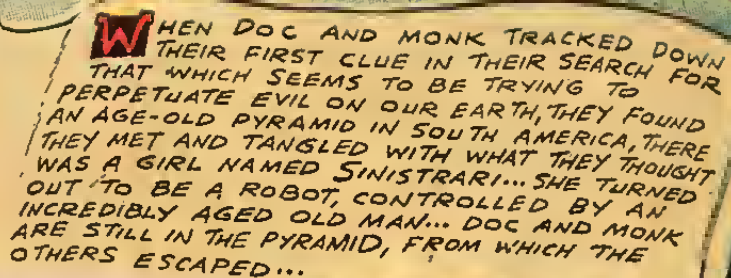 WHEN DOC AND MONK TRACKED DOWN
THEIR FIRST CLUE IN THEIR SEARCH FOR
THAT WHICH SEEMS TO BE TRYING TO
PERPETUATE EVIL ON OUR EARTH, THEY FOUND
AN AGE-OLD PYRAMID IN SOUTH AMERICA, THERE
THEY MET AND TANGLED WITH WHAT THEY THOUGHT
WAS A GIRL NAMED SINISTRARI... SHE TURNED
OUT TO BE A ROBOT, CONTROLLED BY AN
INCREDIBLY AGED OLD MAN... DOC AND MONK
ARE STILL IN THE PYRAMID, FROM WHICH THE
OTHERS ESCAPED...